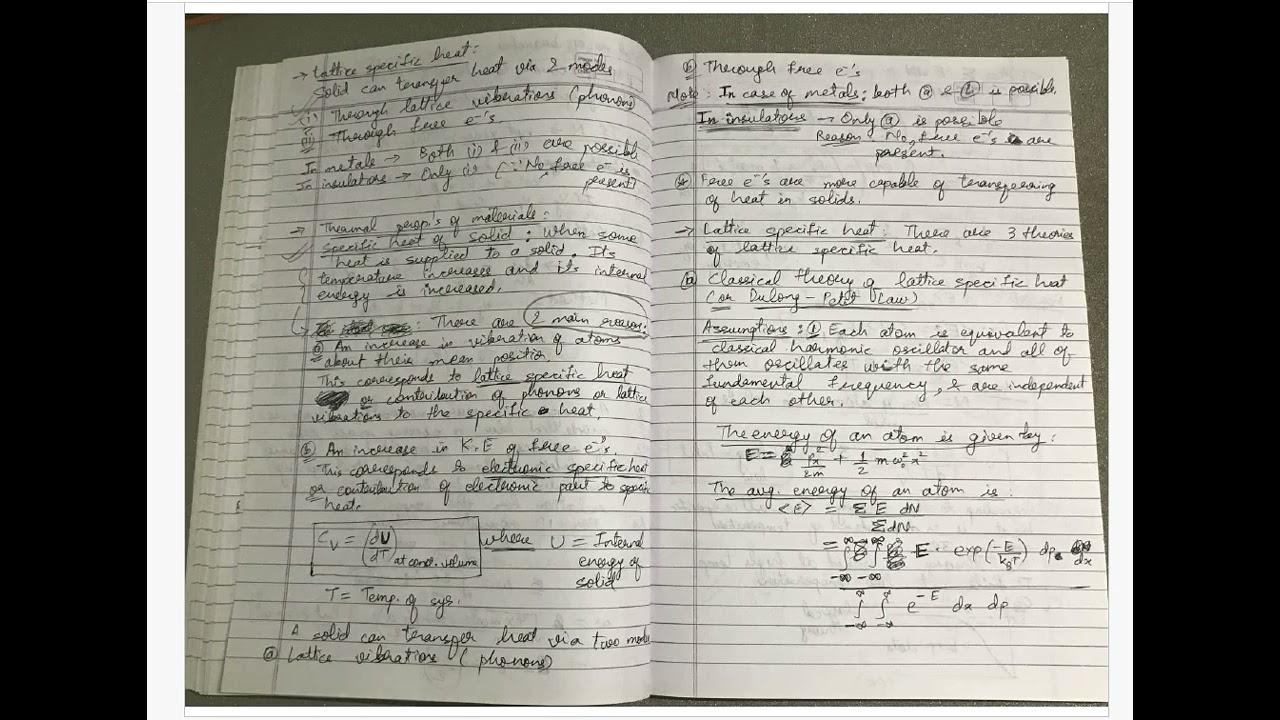 → Lattice specific heat:
Solid can transfer heat via 2 modes
(i) Through lattice vibrations (phonons)
(ii) Through free e⁻'s
In metals → Both (i) & (ii) are possible
In insulators → Only (i) (∵ No free e⁻ is
present)
→ Thermal prop's of materials:
Specific heat of solid: When some
heat is supplied to a solid. Its
temperature increases and its internal
energy is increased.
: There are 2 main reason:
(a) An increase in vibration of atoms
about their mean position.
This corresponds to lattice specific heat
or contribution of phonons or lattice
vibrations to the specific heat.
(b) An increase in K.E of free e⁻'s.
This corresponds to electronic specific heat
or contribution of electronic part to specific
heat.
C_V = (dU/dT) at const. volume where U = Internal
energy of
solid
T = Temp. of sys.
A solid can transfer heat via two mode
(a) Lattice vibrations (phonons)
(b) Through free e⁻'s
Note: In case of metals; both (a) & (b) is possible.
In insulators → Only (a) is possible
Reason: No free e⁻'s are
present.
Free e⁻'s are more capable of transferring
of heat in solids.
→ Lattice specific heat: There are 3 theories
of lattice specific heat.
(a) Classical theory of lattice specific heat
(or Dulong-Petit Law)
Assumptions: (1) Each atom is equivalent to
classical harmonic oscillator and all of
them oscillates with the same
fundamental frequency, & are independent
of each other.
The energy of an atom is given by:
E = pₓ²/2m + 1/2 m ω₀² x²
The avg. energy of an atom is:
<E> = Σ E dN / Σ dN
= ∫_{-∞}^{∞} ∫_{-∞}^{∞} E · exp(-E/k_BT) dp dx
∫_{-∞}^{∞} ∫_{-∞}^{∞} e^{-E} dx dp